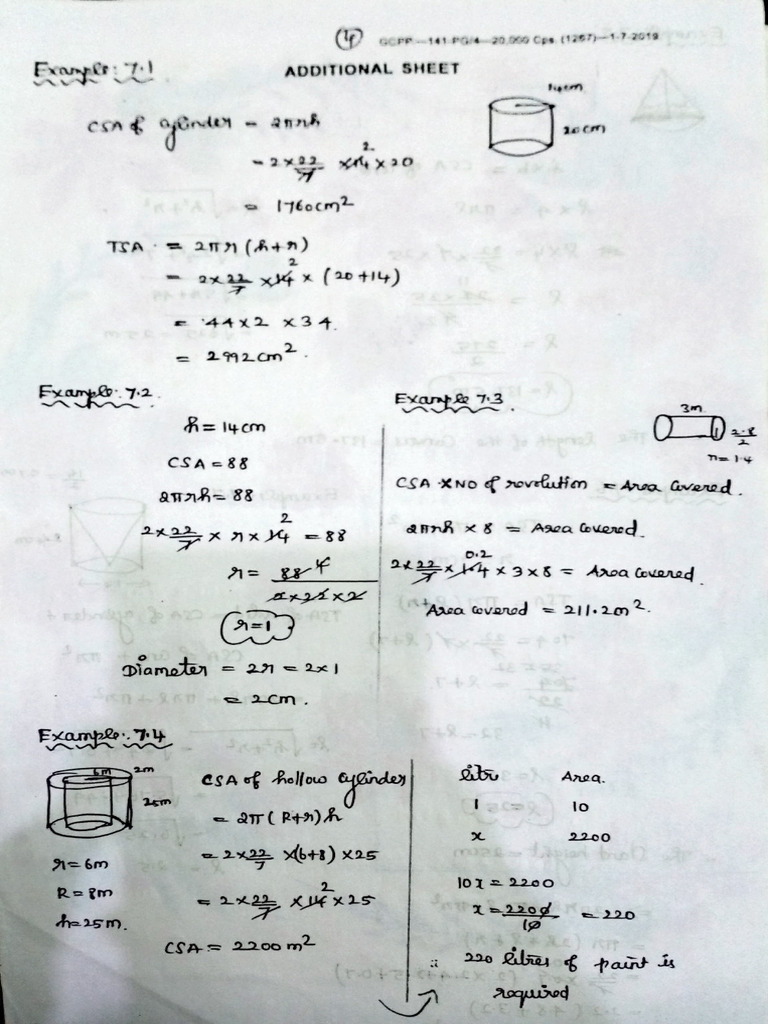 4
GCPP—141-PG/4—20,000 Cps. (1267)—1-7-2019
Example: 7.1
ADDITIONAL SHEET
14cm
20cm
CSA of cylinder = 2πrh
= 2 × 22/7 × 14 2 × 20
= 1760cm²
TSA = 2πr (h+r)
= 2 × 22/7 × 14 2 × (20+14)
= 44×2 ×34.
= 2992cm².
Example: 7.2
h = 14cm
CSA = 88
2πrh = 88
2×22/7 × r × 14 2 = 88
r = 88 4 / 2×22×2
r=1
Diameter = 2r = 2×1
= 2cm.
Example 7.3
3m
2.8/2
r=1.4
CSA × NO of revolution = Area Covered.
2πrh × 8 = Area Covered.
2×22/7 × 1.4 0.2 × 3×8 = Area Covered.
Area covered = 211.2m².
Example: 7.4
6m 2m
25m
r=6m
R=8m
h=25m.
CSA of hollow cylinder
= 2π(R+r)h
= 2×22/7 ×(6+8) ×25
= 2×22/7 ×14 2 ×25
CSA = 2200m²
litre Area.
1 10
x 2200
10x = 2200
x = 2200/10 = 220
∴ 220 litres of paint is
required